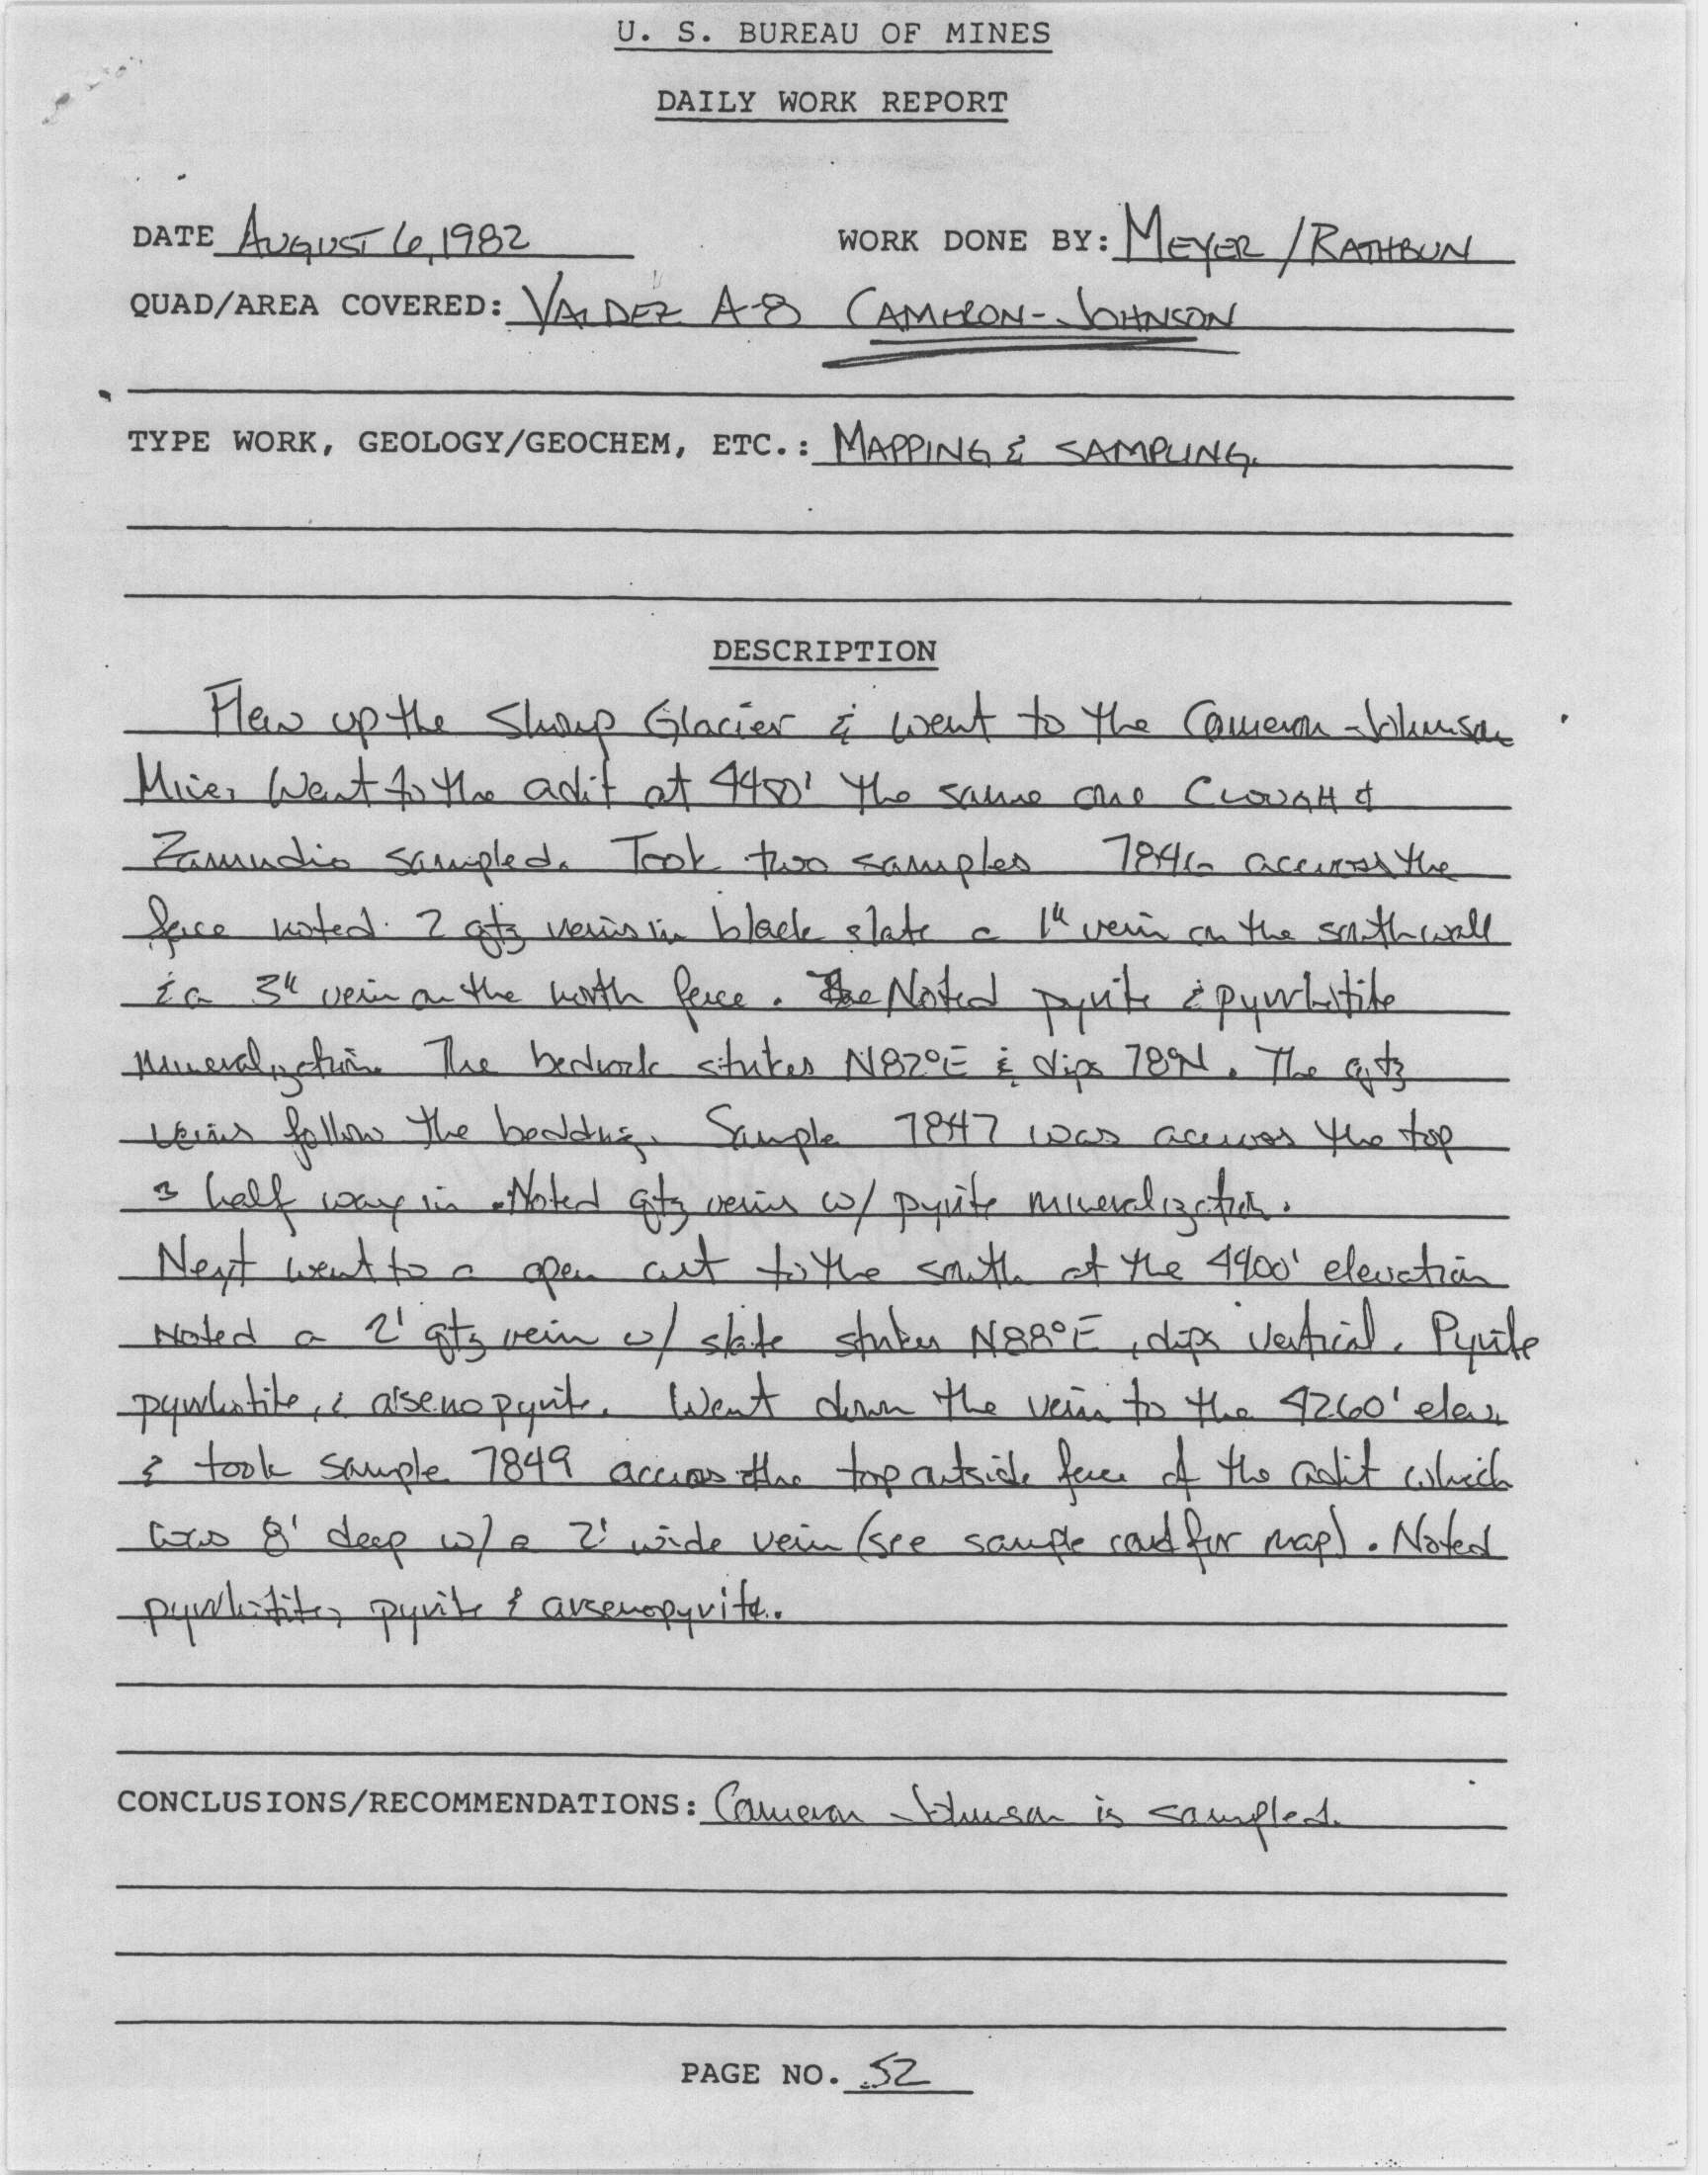 U. S. BUREAU OF MINES
DAILY WORK REPORT
DATE AUGUST 6, 1982 WORK DONE BY: MEYER / RATHBUN
QUAD/AREA COVERED: VALDEZ A-8 CAMERON-JOHNSON
TYPE WORK, GEOLOGY/GEOCHEM, ETC.: MAPPING & SAMPLING.
DESCRIPTION
Flew up the Shoup Glacier & went to the Cameron-Johnson
Mine. Went to the adit at the same one CLOUGH &
Zamudio sampled. Took two samples 7846 accross the
face noted 2 qtz veins in black slate a 1" vein on the south wall
& a 3" vein on the north face. Noted pyrite & pyrrhotite
mineralization. The bedrock strikes N82°E & dips 78°N. The qtz
veins follow the bedding. Sample 7847 was accross the top
half way in. Noted qtz veins w/ pyrite mineralization.
Next went to a open cut to the south at the 4400' elevation
noted a 2' qtz vein w/ slate strikes N88°E, dips vertical. Pyrite
pyrrhotite, & arsenopyrite. Went down the vein to the 4260' elev.
& took sample 7849 accross the top outside face of the adit which
was 8' deep w/ a 2' wide vein (see sample card for map). Noted
pyrrhotite, pyrite & arsenopyrite.
CONCLUSIONS/RECOMMENDATIONS: Cameron Johnson is sampled.
PAGE NO. 52